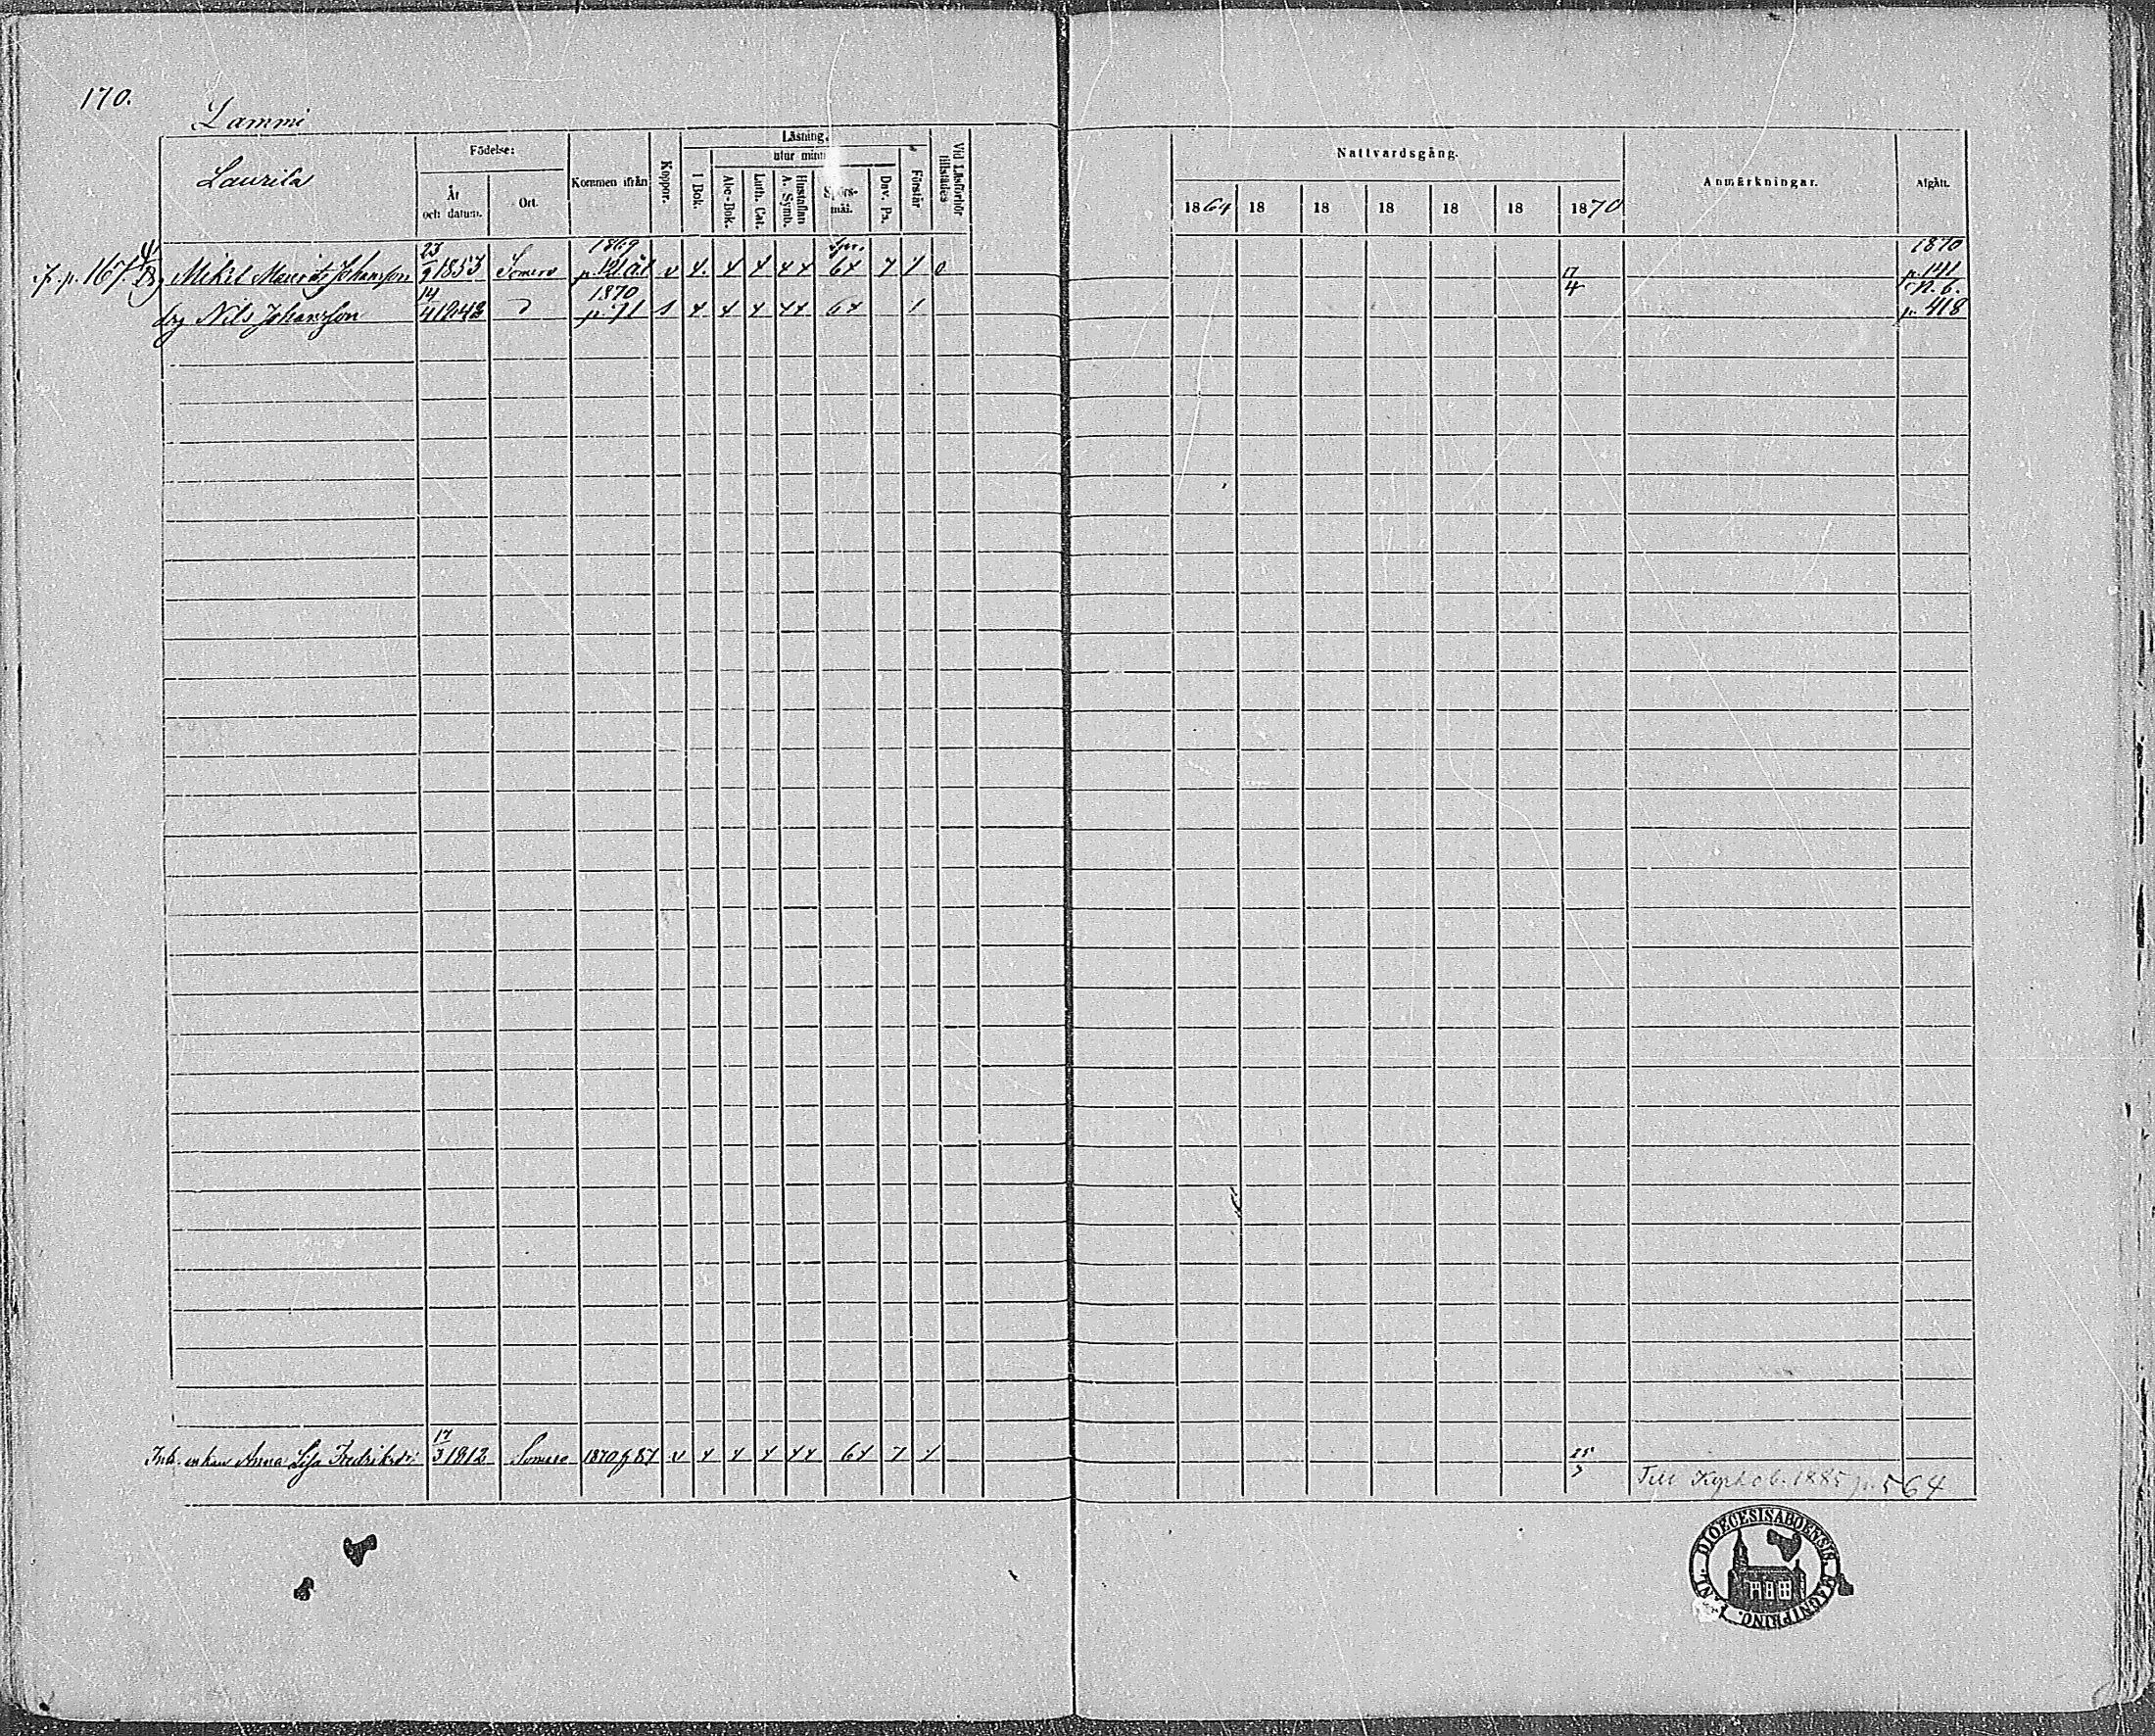 170.
Lammi
Laurila
Födelse:
År och datum.
Ort.
Kommen ifrån
Koppor.
Läsning.
utur minne
I Bok.
Abc-Bok.
Luth. Cat.
Hustaflan A. Symb.
Spörsmål.
Dav. Ps.
Förstår
Vid Läsförhör tillstädes
Nattvardsgång.
1864 18 18 18 18 18 1870
Anmärkningar.
Afgått.
f. p. 167. Drg Mikel Mauritz Johansson 23/9 1853 Somero 1869 v 4 4 4 4 4 Spr. 64 7 1 0 17/4 1870 p. 141
drg Nils Johansson 14/4 1842 D 1870 p 71 s 4 4 4 4 4 64 1 N. b. p. 418
Inh. enkan Anna Lisa Fredriksdr 17/3 1812 Somero 1870 p 87 v 4 4 4 4 4 64 7 1 25/7
Till Kyrkob. 1885 p. 564
DIOECESIS ABOENSIS MAGNI PRINC.